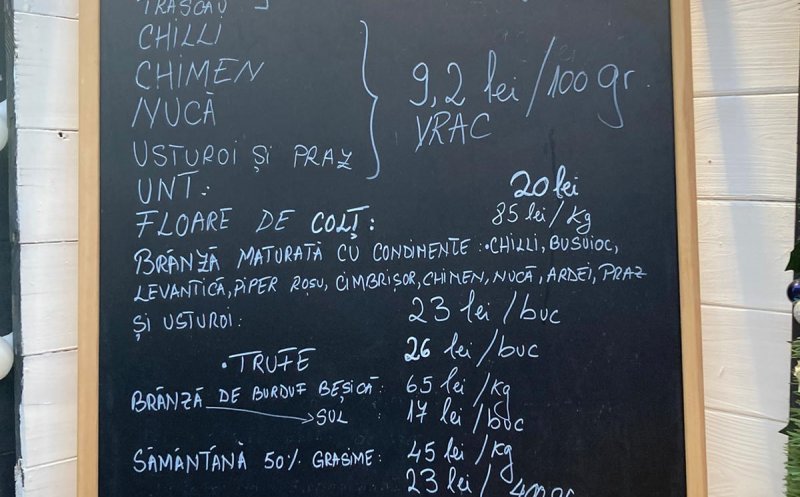 TRASCĂU
CHILLI
CHIMEN
NUCĂ
9,2 lei/100 gr.
VRAC
USTUROI ȘI PRAZ
UNT: 20 lei
FLOARE DE COLȚ: 85 lei/kg
BRÂNZĂ MATURATĂ CU CONDIMENTE: •CHILLI, BUSUIOC,
LEVANTICĂ, PIPER ROȘU, CIMBRIȘOR, CHIMEN, NUCĂ, ARDEI, PRAZ
ȘI USTUROI: 23 lei/buc
•TRUFE 26 lei/buc
BRÂNZĂ DE BURDUF BEȘICĂ: 65 lei/kg
SUL 17 lei/buc
SĂMÂNTÂNĂ 50% GRASIME: 45 lei/kg
23 lei/400gr